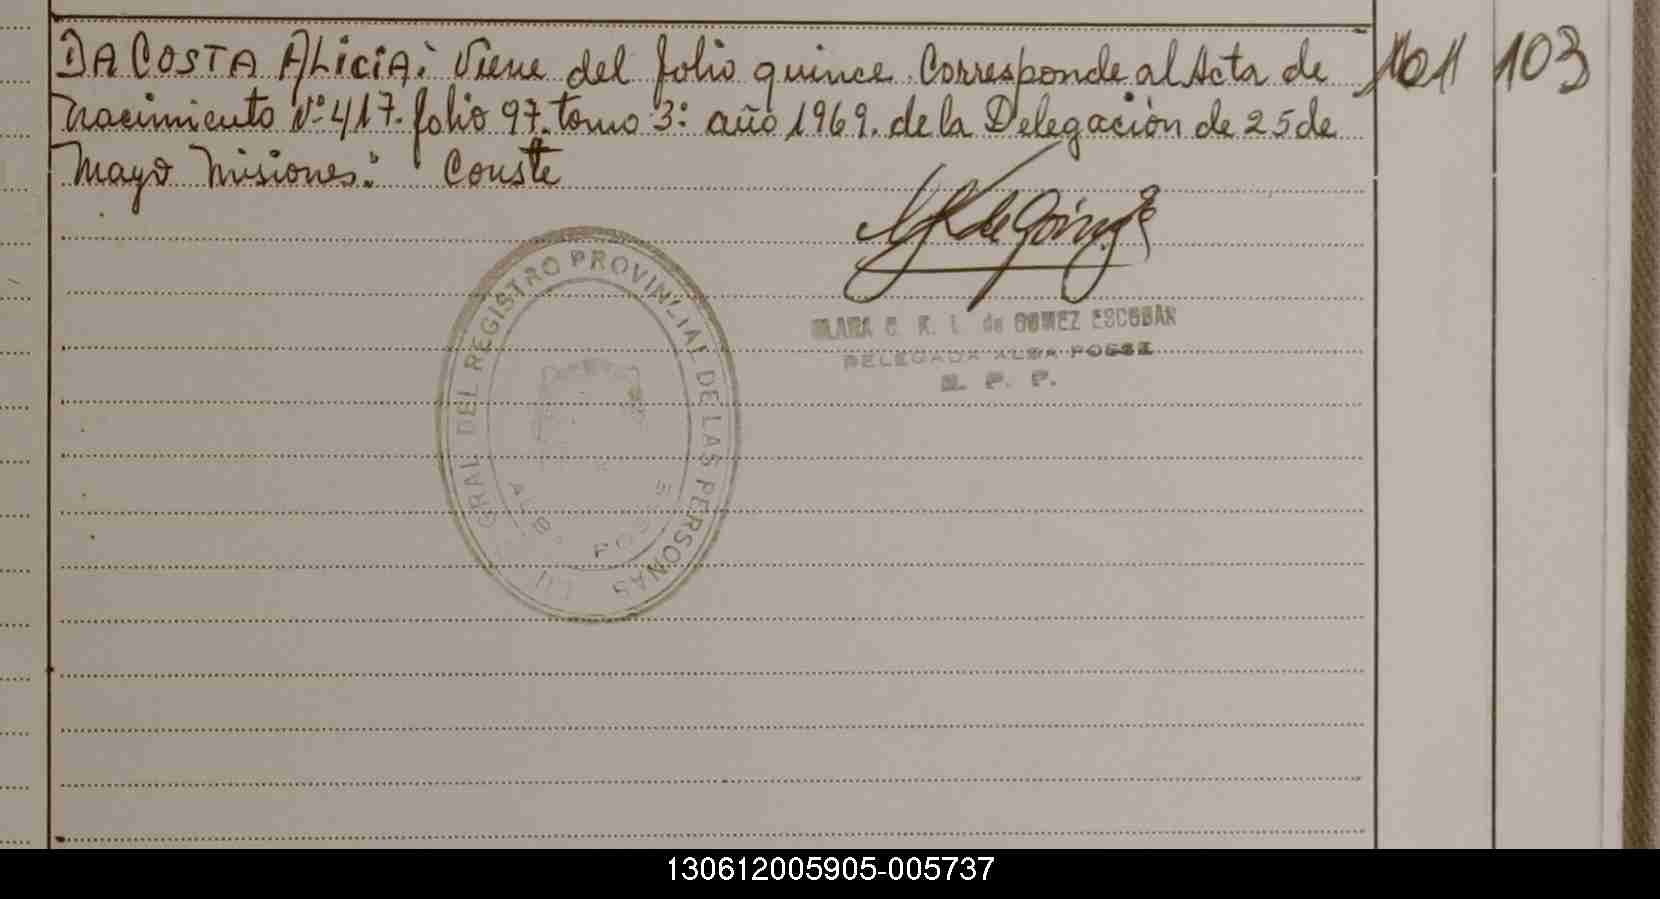 DA COSTA ALiciA: Viene del folio quince. Corresponde al Acta de
Nacimiento Nº 417. folio 97. tomo 3: año 1969. de la Delegación de 25 de
Mayo Misiones: Conste
101
103
GRAL DEL REGISTRO PROVINCIAL DE LAS PERSONAS
ALBA POSSE
CLARA de GOMEZ ESCOBAR
DELEGADA ALBA POSSE
R. P. P.
130612005905-005737